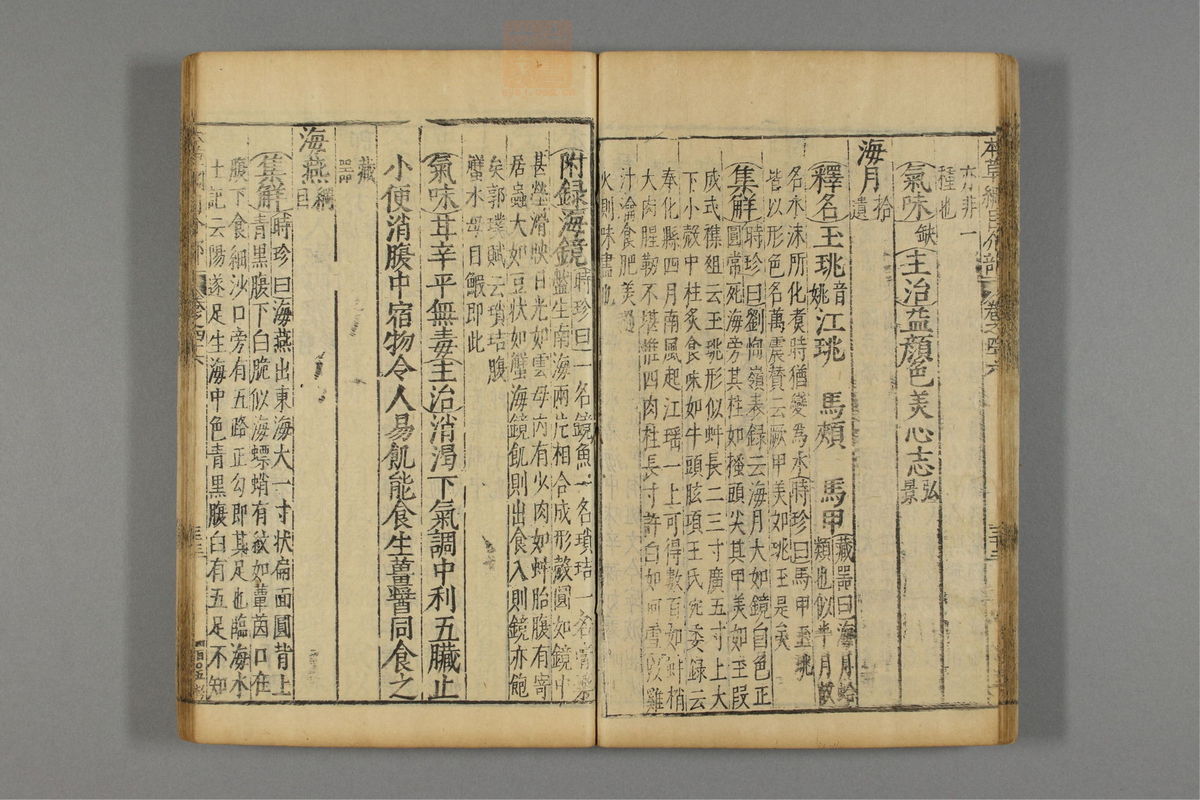 本草綱目介部 卷之四十六 三十三
亦非一
種也
氣味缺主治益顏色美心志弘
景
海月拾
遺
釋名玉珧音
姚江珧 馬頰 馬甲藏器曰海月蛤
類也似半月故
名水沫所化煑時猶變爲水時珍曰馬甲玉珧
皆以形色名萬震贊云厥甲美如珧玉是矣
集解時珍曰劉恂嶺表録云海月大如鏡白色正
圓常死海旁其柱如搔頭尖其甲美如玉段
成式雜俎云玉珧形似蚌長二三寸廣五寸上大
下小殼中柱炙食味如牛頭胘項王氏宛委録云
奉化縣四月南風起江瑶一上可得數百如蚌稍
大肉腥韌不堪惟四肉柱長寸許白如珂雪以雞
汁瀹食肥美過
火則味盡也
附録海鏡時珍曰一名鏡魚一名瑣玤一名膏藥
盤生南海兩片相合成形殼圓如鏡中
甚瑩滑映日光如雲母内有少肉如蚌胎腹有寄
居蟲大如豆状如蟹海鏡飢則出食入則鏡亦飽
矣郭璞賦云瑣玤腹
蟹水母目鰕即此
氣味甘辛平無毒主治消渴下氣調中利五臟止
小便消腹中宿物令人易飢能食生薑醬同食之
藏
器
海燕綱
目
集解時珍曰海燕出東海大一寸状扁面圓背上
青黑腹下白脆似海螵蛸有紋如蕈茵口在
腹下食細沙口旁有五路正勾即其足也臨海水
土記云陽遂足生海中色青黑腹白有五足不知